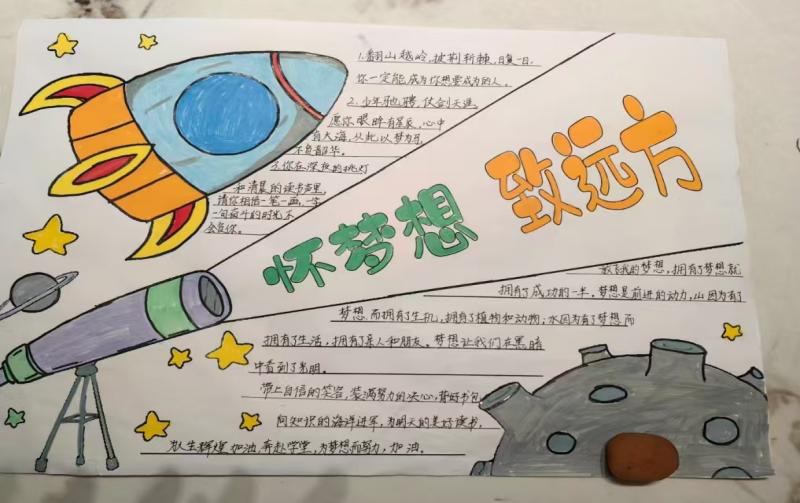 1.翻山越岭,披荆斩棘,日复一日,
你一定能成为你想要成为的人。
2.少年驰骋,仗剑天涯,
愿你眼眸有星辰,心中
有大海,从此以梦为马,
不负韶华。
3.你在深夜的挑灯
和清晨的读书声里,
请你相信一笔一画,一字
一句奋斗的时光不
会负你。
怀梦想 致远方
放飞我的梦想,拥有了梦想就
拥有了成功的一半。梦想是前进的动力,山因为有了
梦想而拥有了生机,拥有了植物和动物;水因为有了梦想而
拥有了生活,拥有了亲人和朋友。梦想让我们在黑暗
中看到了光明。
带上自信的笑容,装满努力的决心,背好书包
向知识的海洋进军,为明天的美好读书,
为人生辉煌加油,奔赴学堂,为梦想而努力,加油。